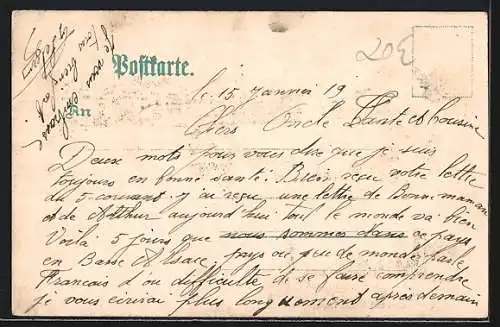 20€
Postkarte.
An
le 15 Janvier 19
Chers Oncle Tante et Cousine
Deux mots pour vous dire que je suis
toujours en bonne santé. Bien reçu votre lettre
du 5 courant. j'ai reçu une lettre de Bonne maman
et de Arthur aujourd'hui tout le monde va bien
Voilà 5 jours que nous sommes dans ce pays
en Basse Alsace, pays où peu de monde parle
Français d'ou difficulté de se faire comprendre
je vous écrirai plus longuement après demain
Je vous
tous bien